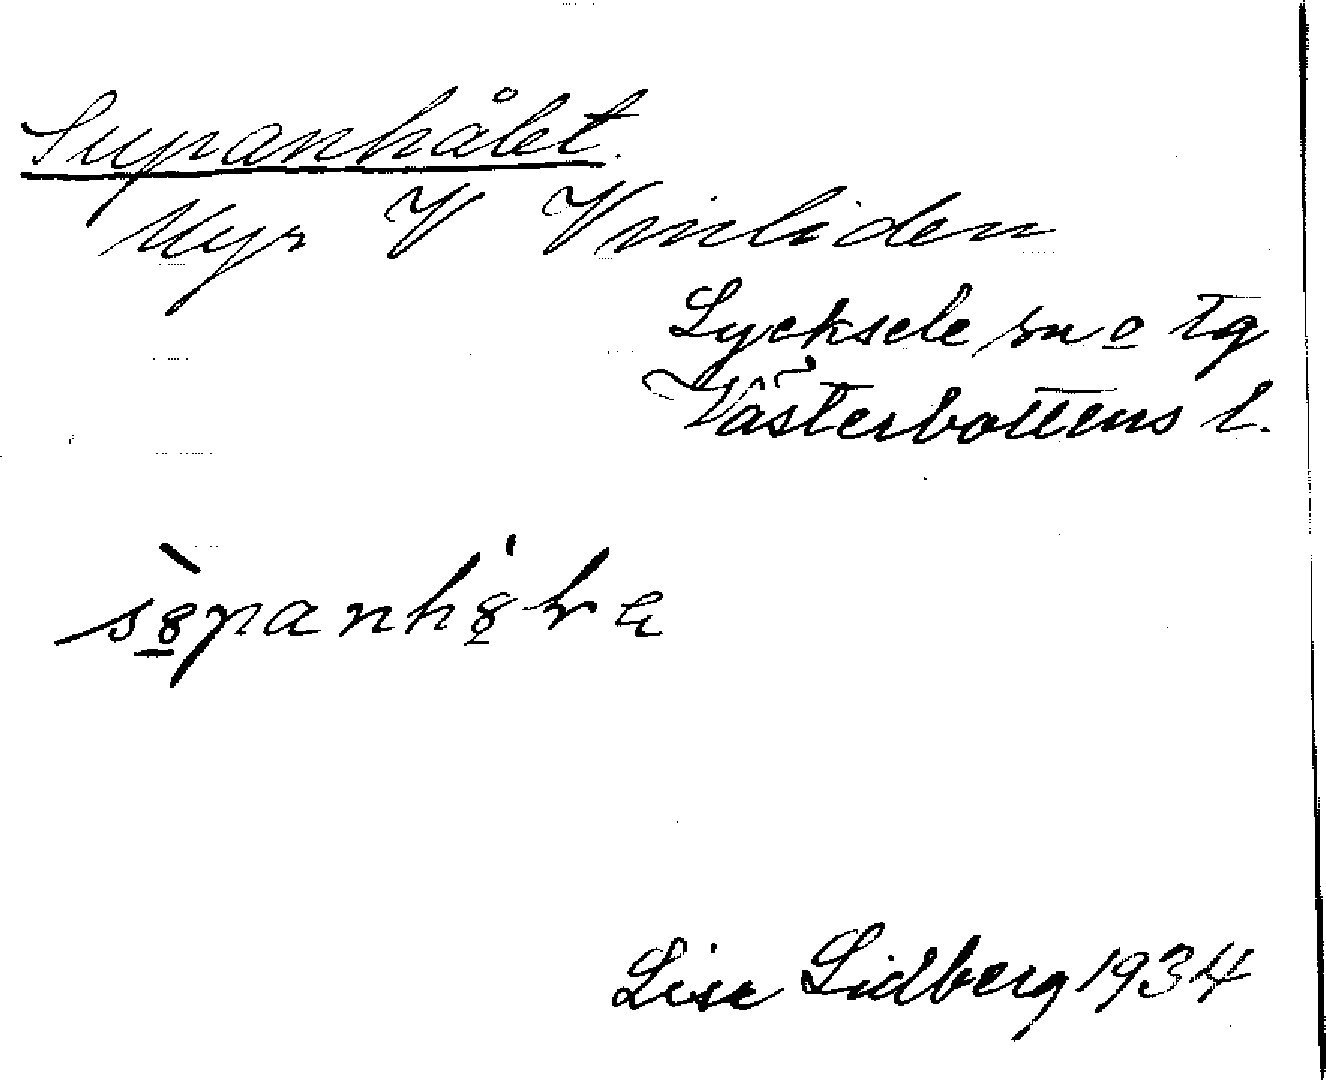 Supanhålet.
Myr V Vinliden
Lycksele sn o tg
Västerbottens l.
Lisa Lidberg 1934